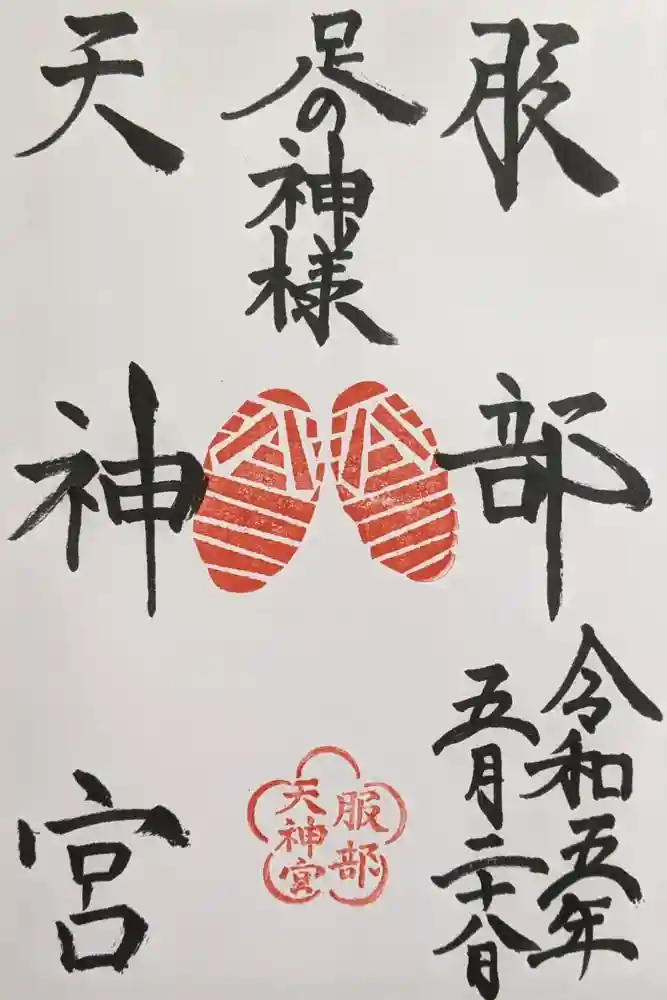 服部
足の神様
天神宮
令和五年
五月二十八日
服部
天神宮